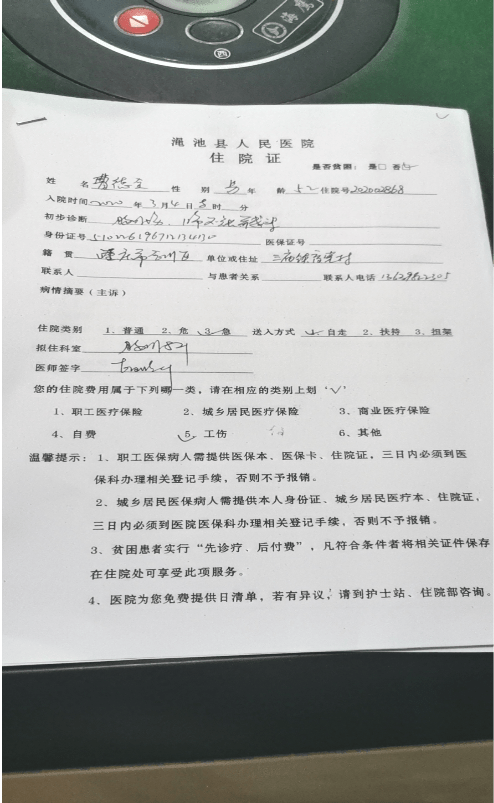 海鹰
渑池县人民医院
住院证
是否贫困：是□ 否
姓 名 曹德 性 别 男 年 龄 52 住院号202002868
入院时间2020年3月4日 时 分
初步诊断
身份证号 医保证号
籍 贯 重庆市万州区 单位或住址
联系人 与患者关系 联系人电话
病情摘要（主诉）
住院类别 1、普通 2、危 3、急 送入方式 1、自走 2、扶持 3、担架
拟住科室
医师签字
您的住院费用属于下列哪一类，请在相应的类别上划‘√’
1、职工医疗保险 2、城乡居民医疗保险 3、商业医疗保险
4、自费 5、工伤 6、其他
温馨提示：1、职工医保病人需提供医保本、医保卡、住院证，三日内必须到医
保科办理相关登记手续，否则不予报销。
2、城乡居民医保病人需提供本人身份证、城乡居民医疗本、住院证，
三日内必须到医院医保科办理相关登记手续，否则不予报销。
3、贫困患者实行“先诊疗、后付费”，凡符合条件者将相关证件保存
在住院处可享受此项服务。
4、医院为您免费提供日清单，若有异议，请到护士站、住院部咨询。